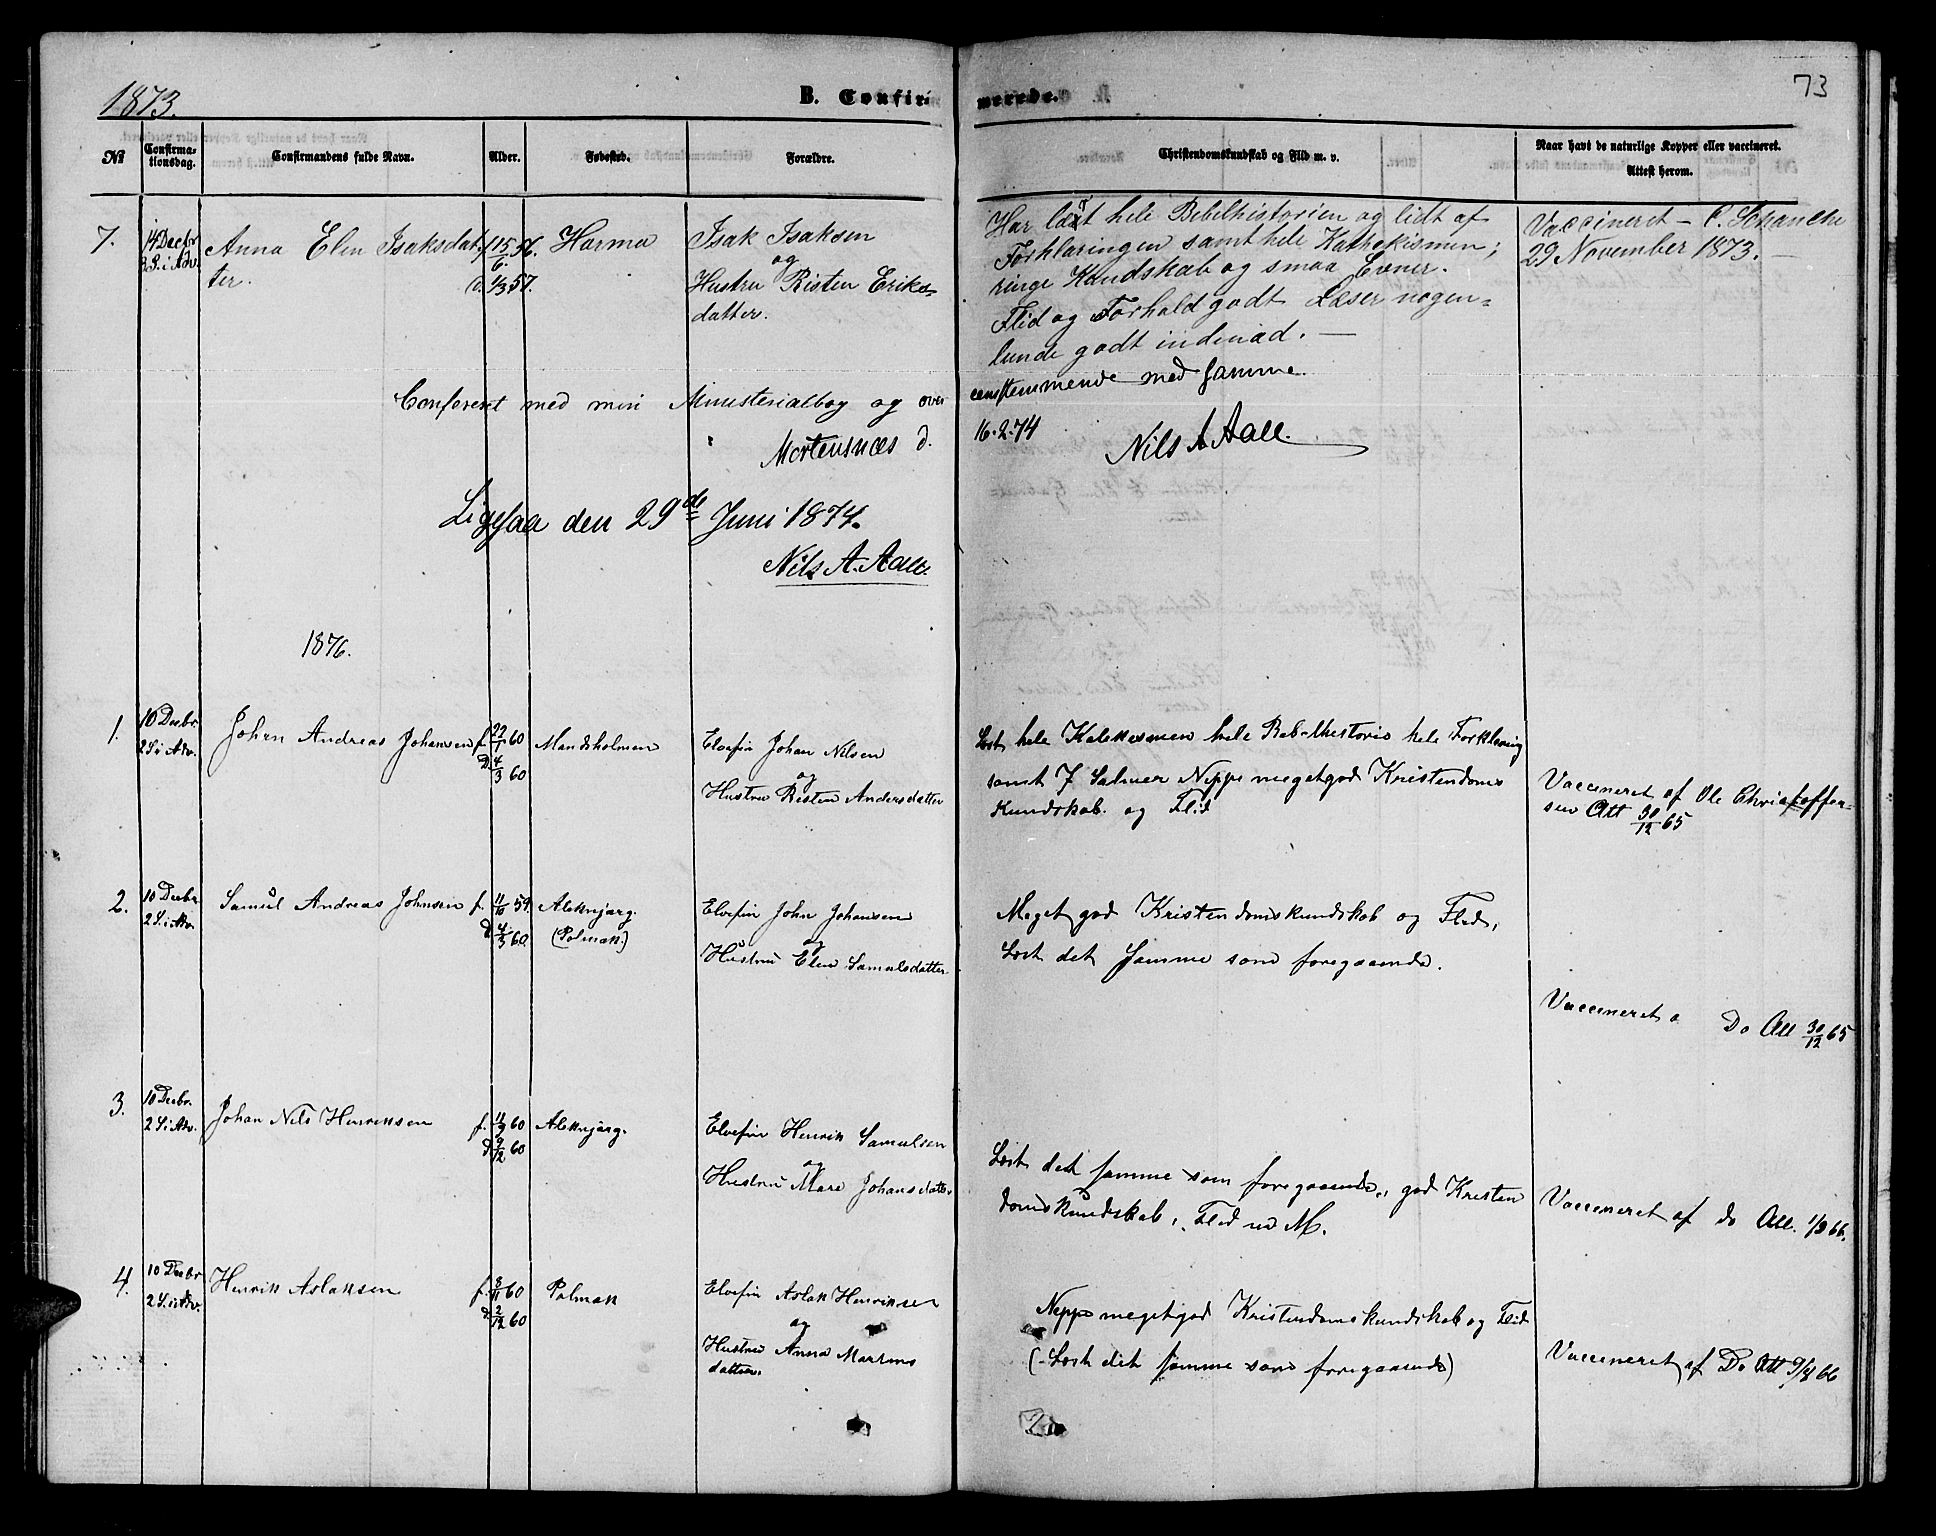 1873.
B. Confirmerede.
73
No
Confirmationsdag.
Confirmandens fulde Navn.
Alder.
Fødested.
Forældre.
Christendomskundskab og Flid m. v.
Naar havt de naturlige Kopper eller vaccineret.
Attest herom.
7.
14 Decbr
3 S. i Adv.
Anna Elen Isaksdat-
ter.
f. 15/6 56.
d. 1/3 57.
Harma
Isak Isaksen
og
Hustru Risten Eriks-
datter.
Har læst hele Bibelhistorien og lidt af
Forklaringen samt hele Kathekismen;
ringe Kundskab og smaa Evner.
Flid og Forhold godt Læser nogen-
lunde godt indenad. —
Vaccineret – C. Schanche
29 November 1873. —
Conferert med min Ministerialbog og over
eensstemmende med samme.
Mortensnæs d.
16.2.74
Nils A Aall.
Ligesaa den 29de Juni 1874.
Nils A. Aall.
1876.
1.
10 Decbr
2 S i Adv.
Johan Andreas Johansen
f. 22/1 60
D. 4/3 60
Mandsholmen
Elvefin Johan Nilsen
og
Hustru Risten Andersdatter
Læst hele Katekismen hele Bibelhistorie hele Forklaring
samt 7 Salmer Neppe megetgod Kristendoms
Kundskab og Flid
Vaccineret af Ole Christoffer-
sen Att 30/12 65
2.
10 Decbr
2 S. i Adv.
Samul Andreas Johnsen
f. 11/10 59.
D. 4/3 60.
Aleknjarg.
(Polmak.)
Elvefin John Johansen
og
Hustru Elen Samulsdatter
Meget god Kristendomskundskab og Flid,
Læst det Samme som foregaaende.
Vaccineret a Do Att 30/12 65
3.
10 Decbr.
2 S. i Adv.
Johan Nils Henriksen
f. 11/9 60
D 2/12 60
Aleknjarg.
Elvefin Henrik Samulsen
og
Hustru Mare Johansdatter
Læst det samme som foregaaende, god Kristen
domskundskab, Flid ud M.
Vaccineret af do Att. 1/2 66.
4.
10 Decbr
2 S. i Adv.
Henrik Aslaksen
f. 3/11 60
D. 2/12 60
Polmak
Elvefin Aslak Henriksen
og
Hustru Anna Martins
datter.
Neppe megetgod Kristendomskundskab og Flid
(Læst det samme som foregaaende)
Vaccineret af Do Att 9/8 66